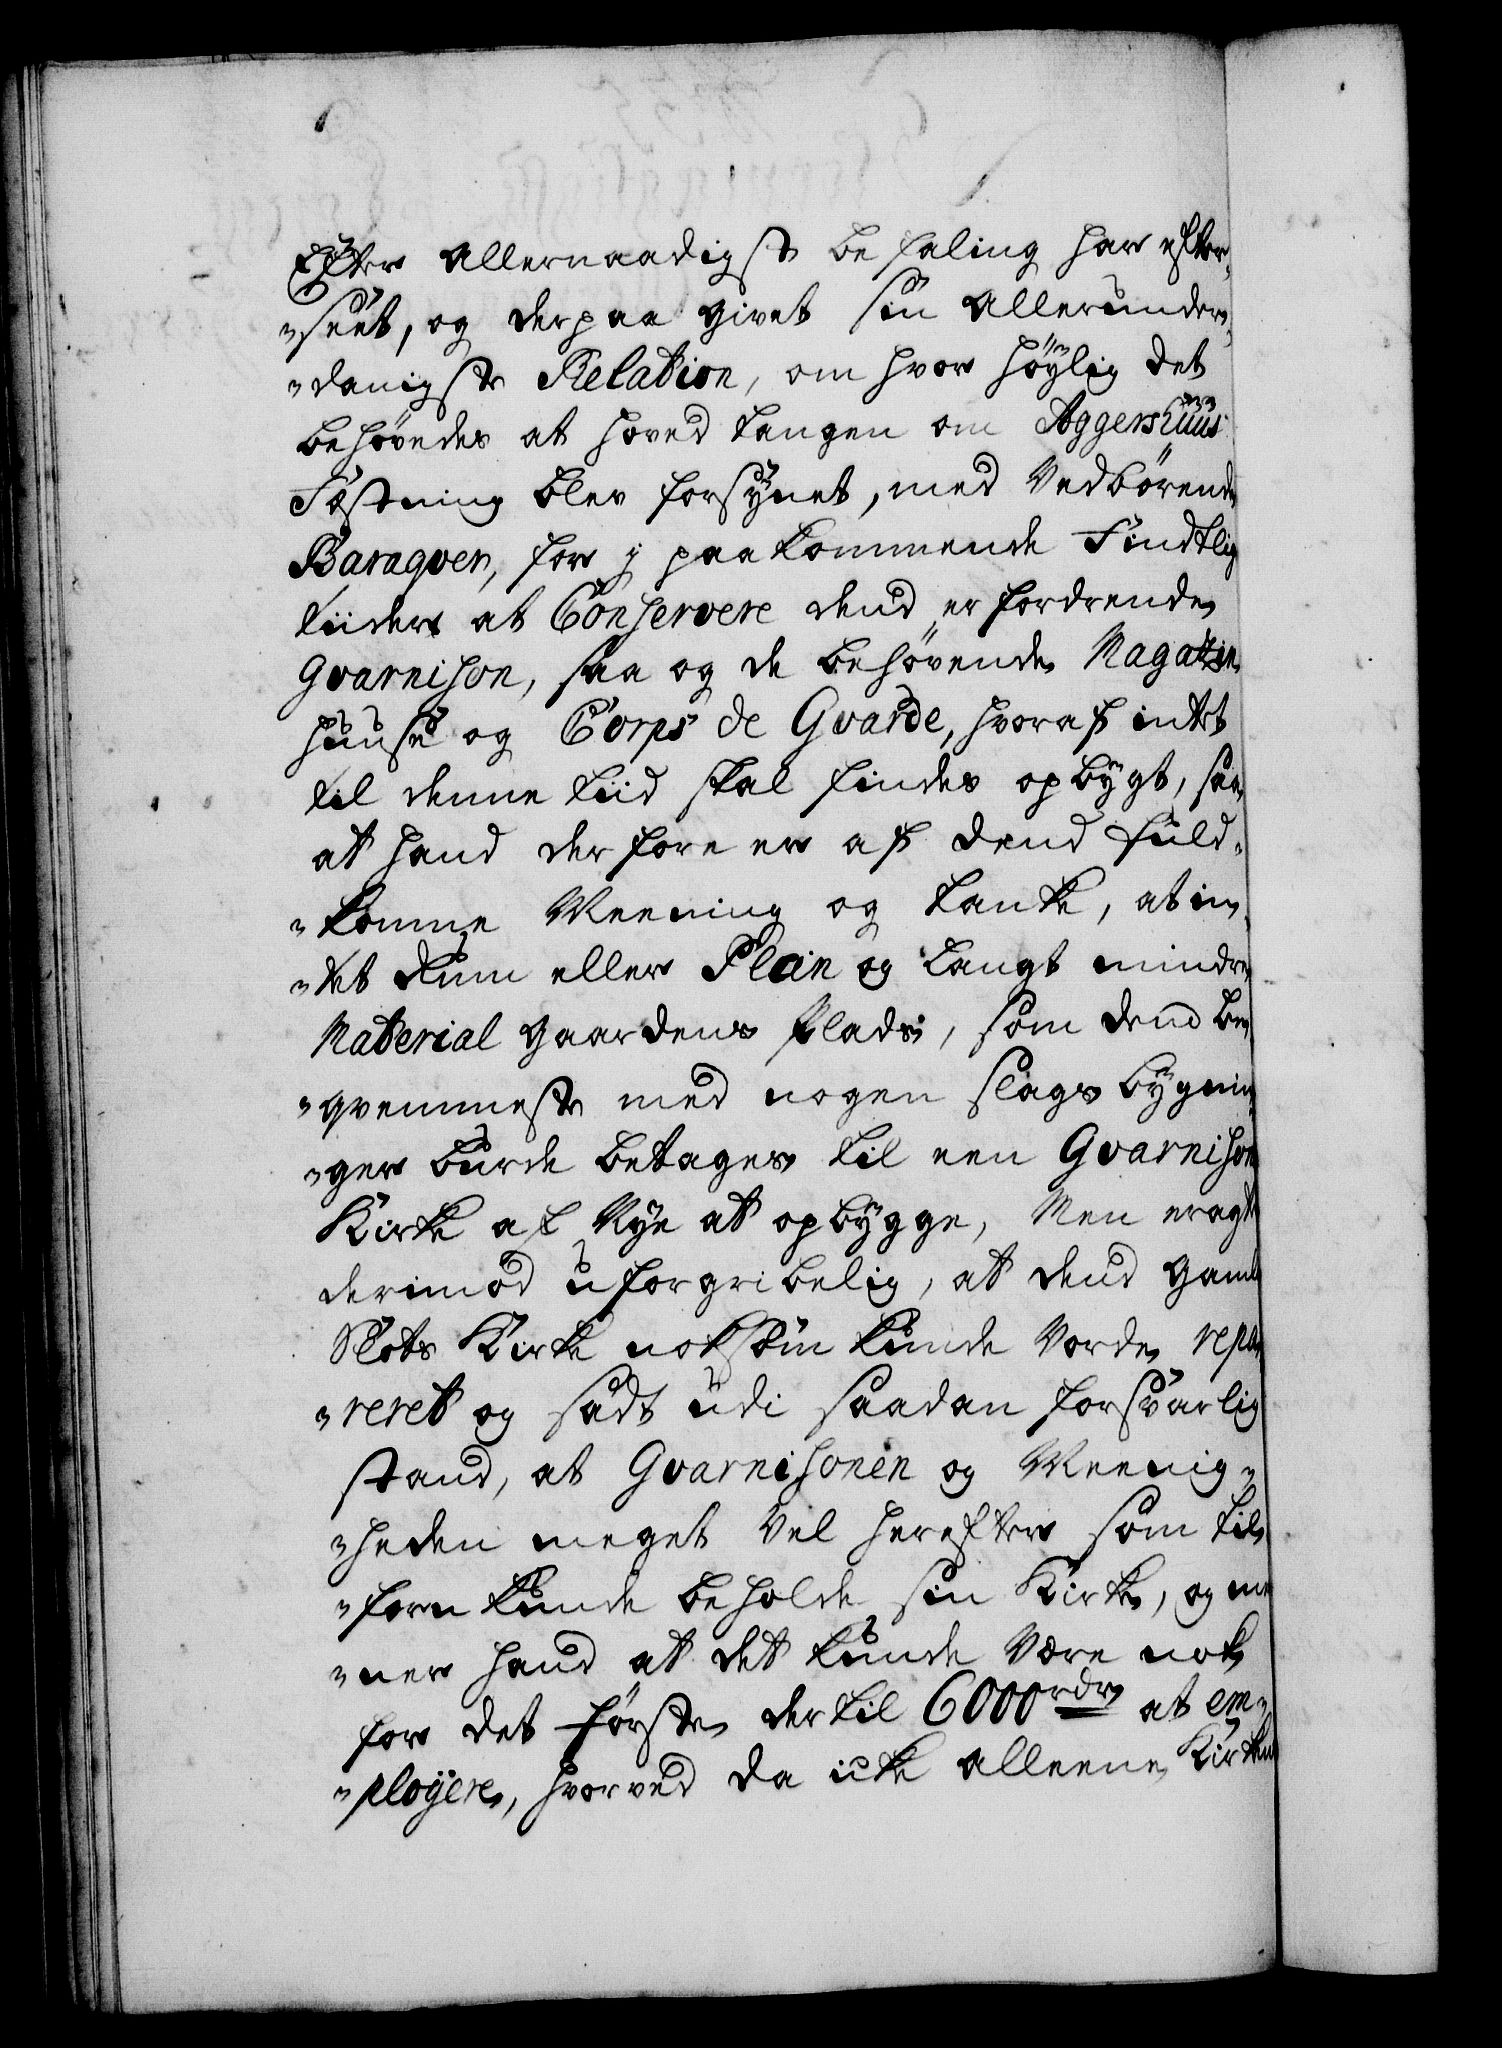 Efter Allernaadigste befaling har efter-
-seét, og derpaa givet sin Allerunder-
-danigste Relation, om hvor höÿlig det
behövedes at hoved tangen om Aggershuus
Fæstning blev forsÿnet, med Vedbörende
Baraqver, for j paakommende Findtlig
tiider at Conservere dend erfordrende
Gvarnison, saa og de behövende Magatzin
huuse og Corps de Gvarde, hvoraf intet
til denne tiid skal findes opbÿgt, saa
at hand derfore er af dend fuld-
-komne Meening og tanke, at in-
-tet Rum eller Plan og langt mindre
Material gaardens Plads, som dend be-
-qvemmeste med nogen slags bÿgnin-
-ger burde betages til een Gvarnison
Kirke af Nÿe at opbÿgge, Men eragte
derimod uforgribelig, at dend gamle
Slots Kirke noksom kunde Vorde repa-
-reret og sadt udi saadan forsvarlig
stand, at Gvarnisonen og Meenig-
-heden meget Vel herefter som til-
-forn kunde beholde sin Kirke, og me-
-ner hand at det kunde Være nok
for det förste dertil 6000 rdr at em-
-ploÿere, hvorved da icke alleene Kirken